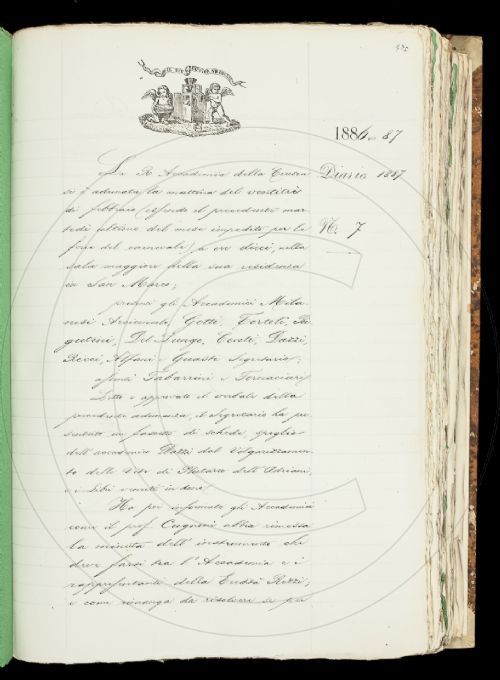 1886-87
Diario 1887
N. 7
La R. Accademia della Crusca
si è adunata la mattina del ventitrè
di febbraio (essendo il precedente mar-
tedì ultimo del mese impedito per le
feste del carnevale) a ore dieci, nella
sala maggiore della sua residenza
in San Marco;
presenti gli Accademici Mila-
nesi Arciconsolo, Gotti, Tortoli, Ri-
gutini, Del Lungo, Conti, Dazzi,
Ricci, Alfani e Guasti Segretario;
assenti Tabarrini e Fornaciari.
Letto e approvato il verbale della
precedente adunanza, il Segretario ha pre-
sentato un fascio di schede, spoglio
dell'accademico Dazzi dal Volgarizzamen-
to delle Vite di Plutarco dell'Adriani,
e i libri venuti in dono.
Ha poi informato gli Accademici
come il prof. Cugnoni abbia rimessa
la minuta dell'instrumento che
deve farsi tra l'Accademia e i
rappresentanti della Eredità Rezzi;
e come rimanga da risolvere se per